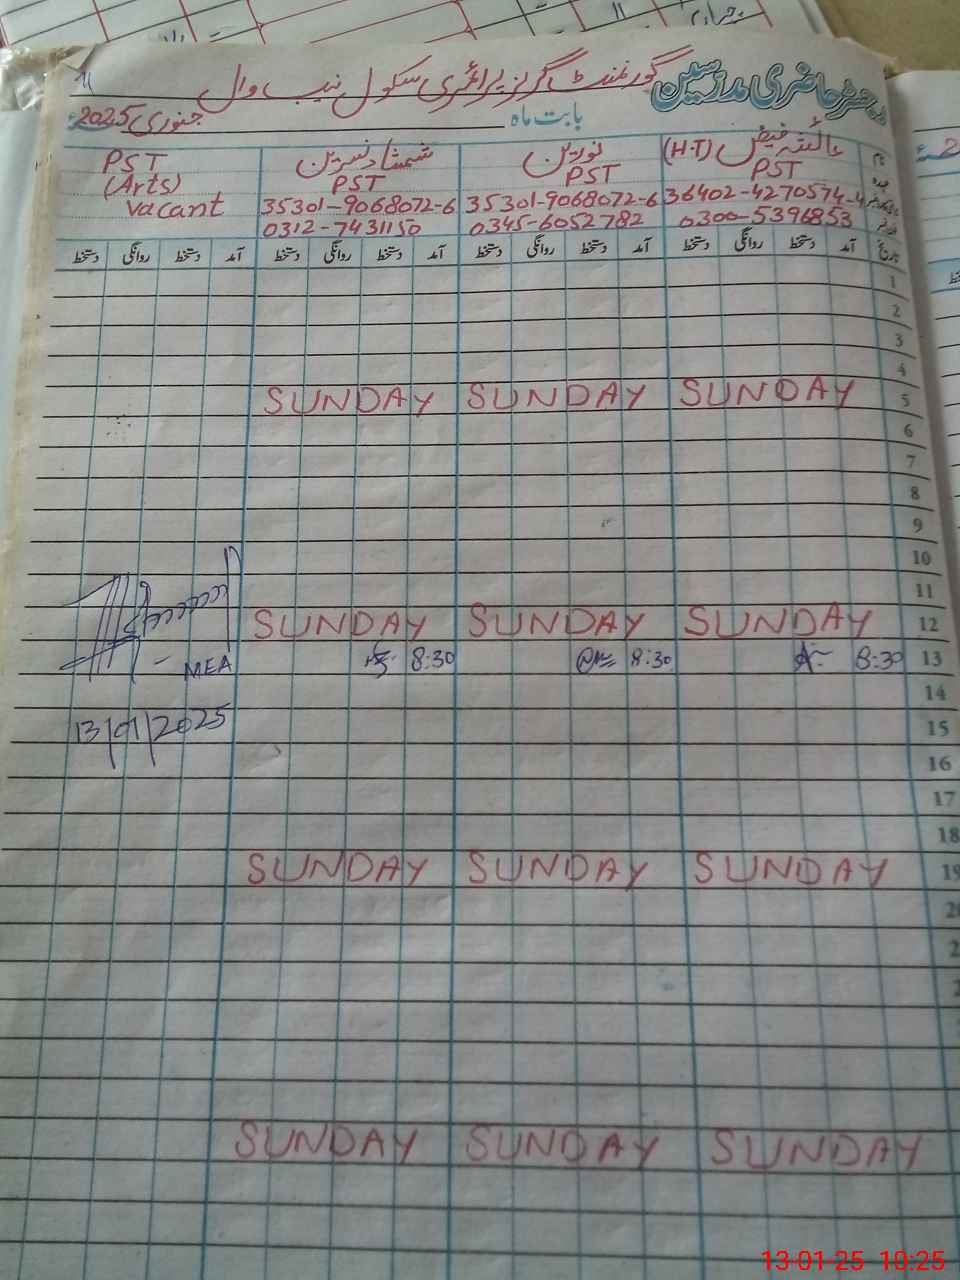 رجسٹر حاضری مدرسین گورنمنٹ گرلز پرائمری سکول نیب وال
بابت ماہ جنوری 2025ء
نام عائشہ فیض (H.T) نورین شمشاد نسرین PST
عہدہ PST PST PST (Arts)
36402-4270574-4 35301-9068072-6 35301-9068072-6 Vacant
0300-5396853 0345-6052782 0312-7431150
تاریخ آمد دستخط روانگی دستخط آمد دستخط روانگی دستخط آمد دستخط روانگی دستخط آمد دستخط روانگی دستخط
1
2
3
4
5 SUNDAY SUNDAY SUNDAY
6
7
8
9
10
11
12 SUNDAY SUNDAY SUNDAY
13 8:30 8:30 8:30 MEA
14
15 13/01/2025
16
17
18
19 SUNDAY SUNDAY SUNDAY
20
SUNDAY SUNDAY SUNDAY
13-01-25 10:25